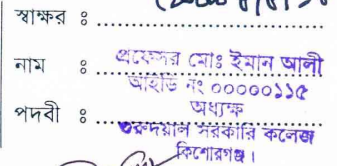 স্বাক্ষর ঃ
নাম ঃ প্রফেসর মোঃ ইমান আলী
আইডি নং ০০০০০১১৫
পদবী ঃ অধ্যক্ষ
গুরুদয়াল সরকারি কলেজ
কিশোরগঞ্জ।